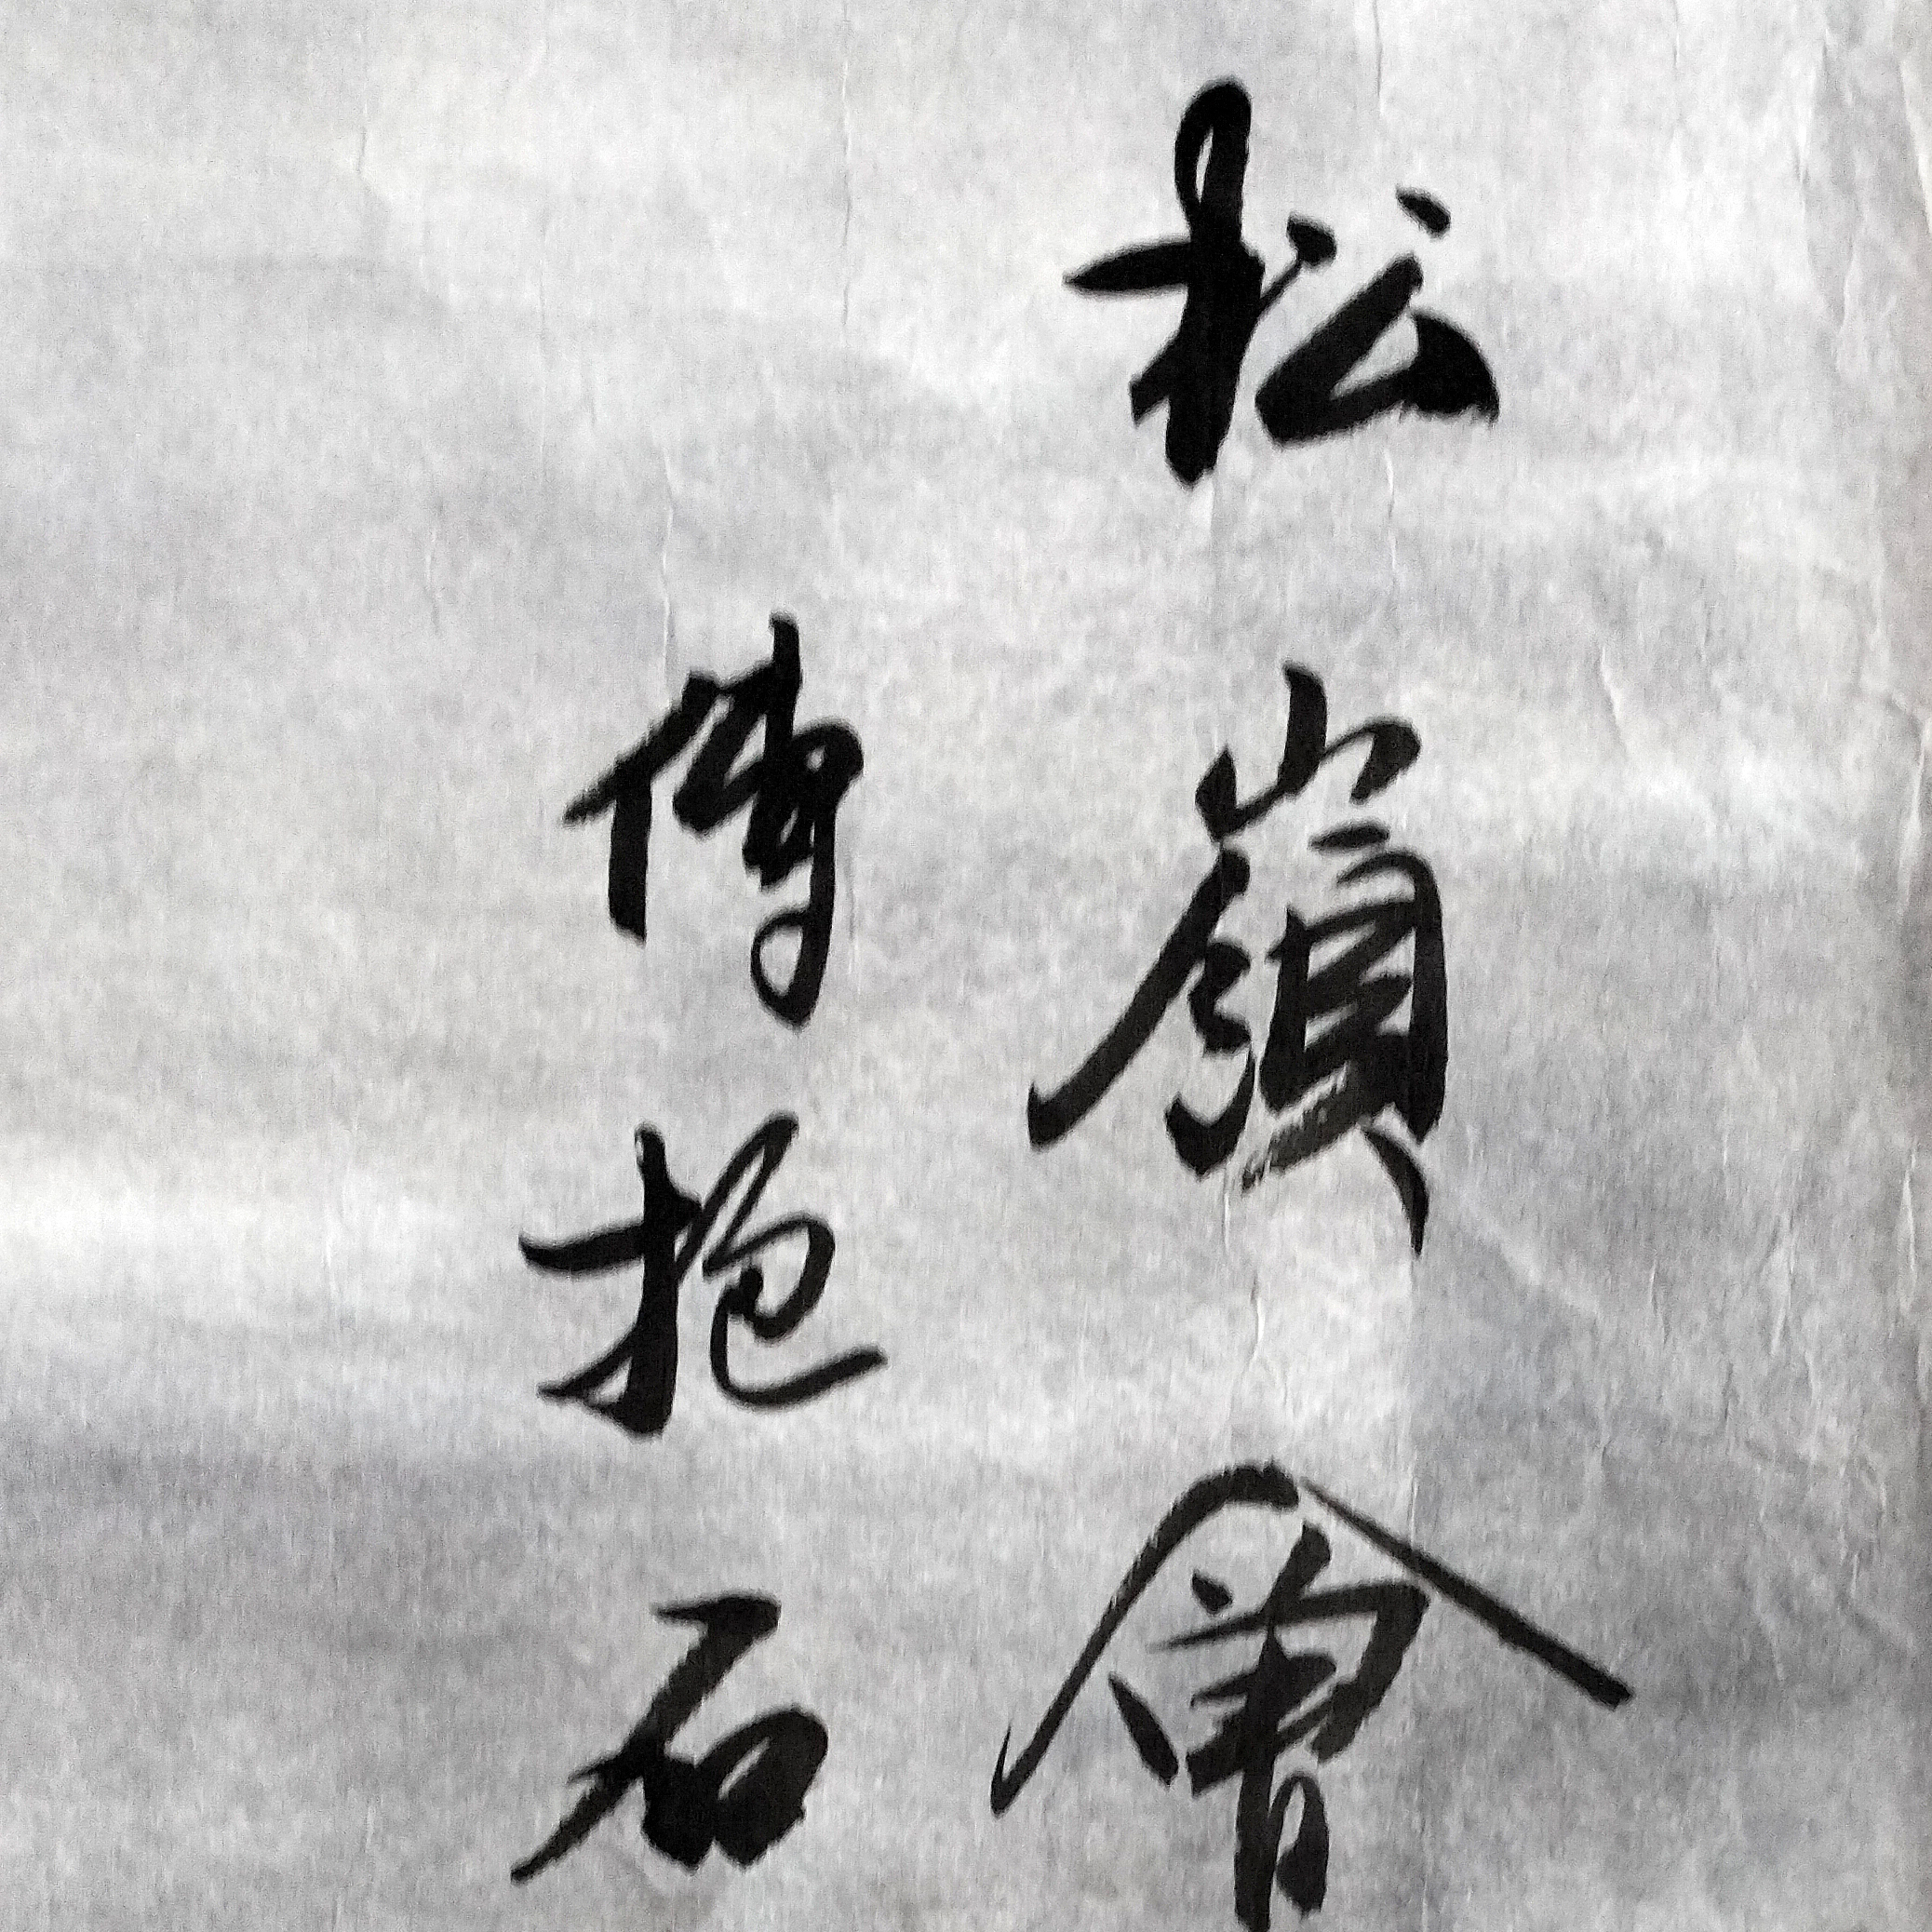 松嶺會
傅抱石